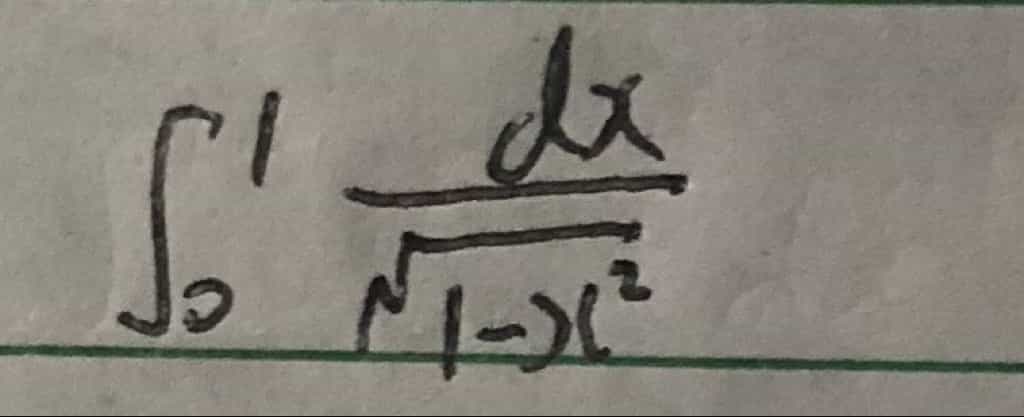 ∫₀¹ dx/√(1-x²)